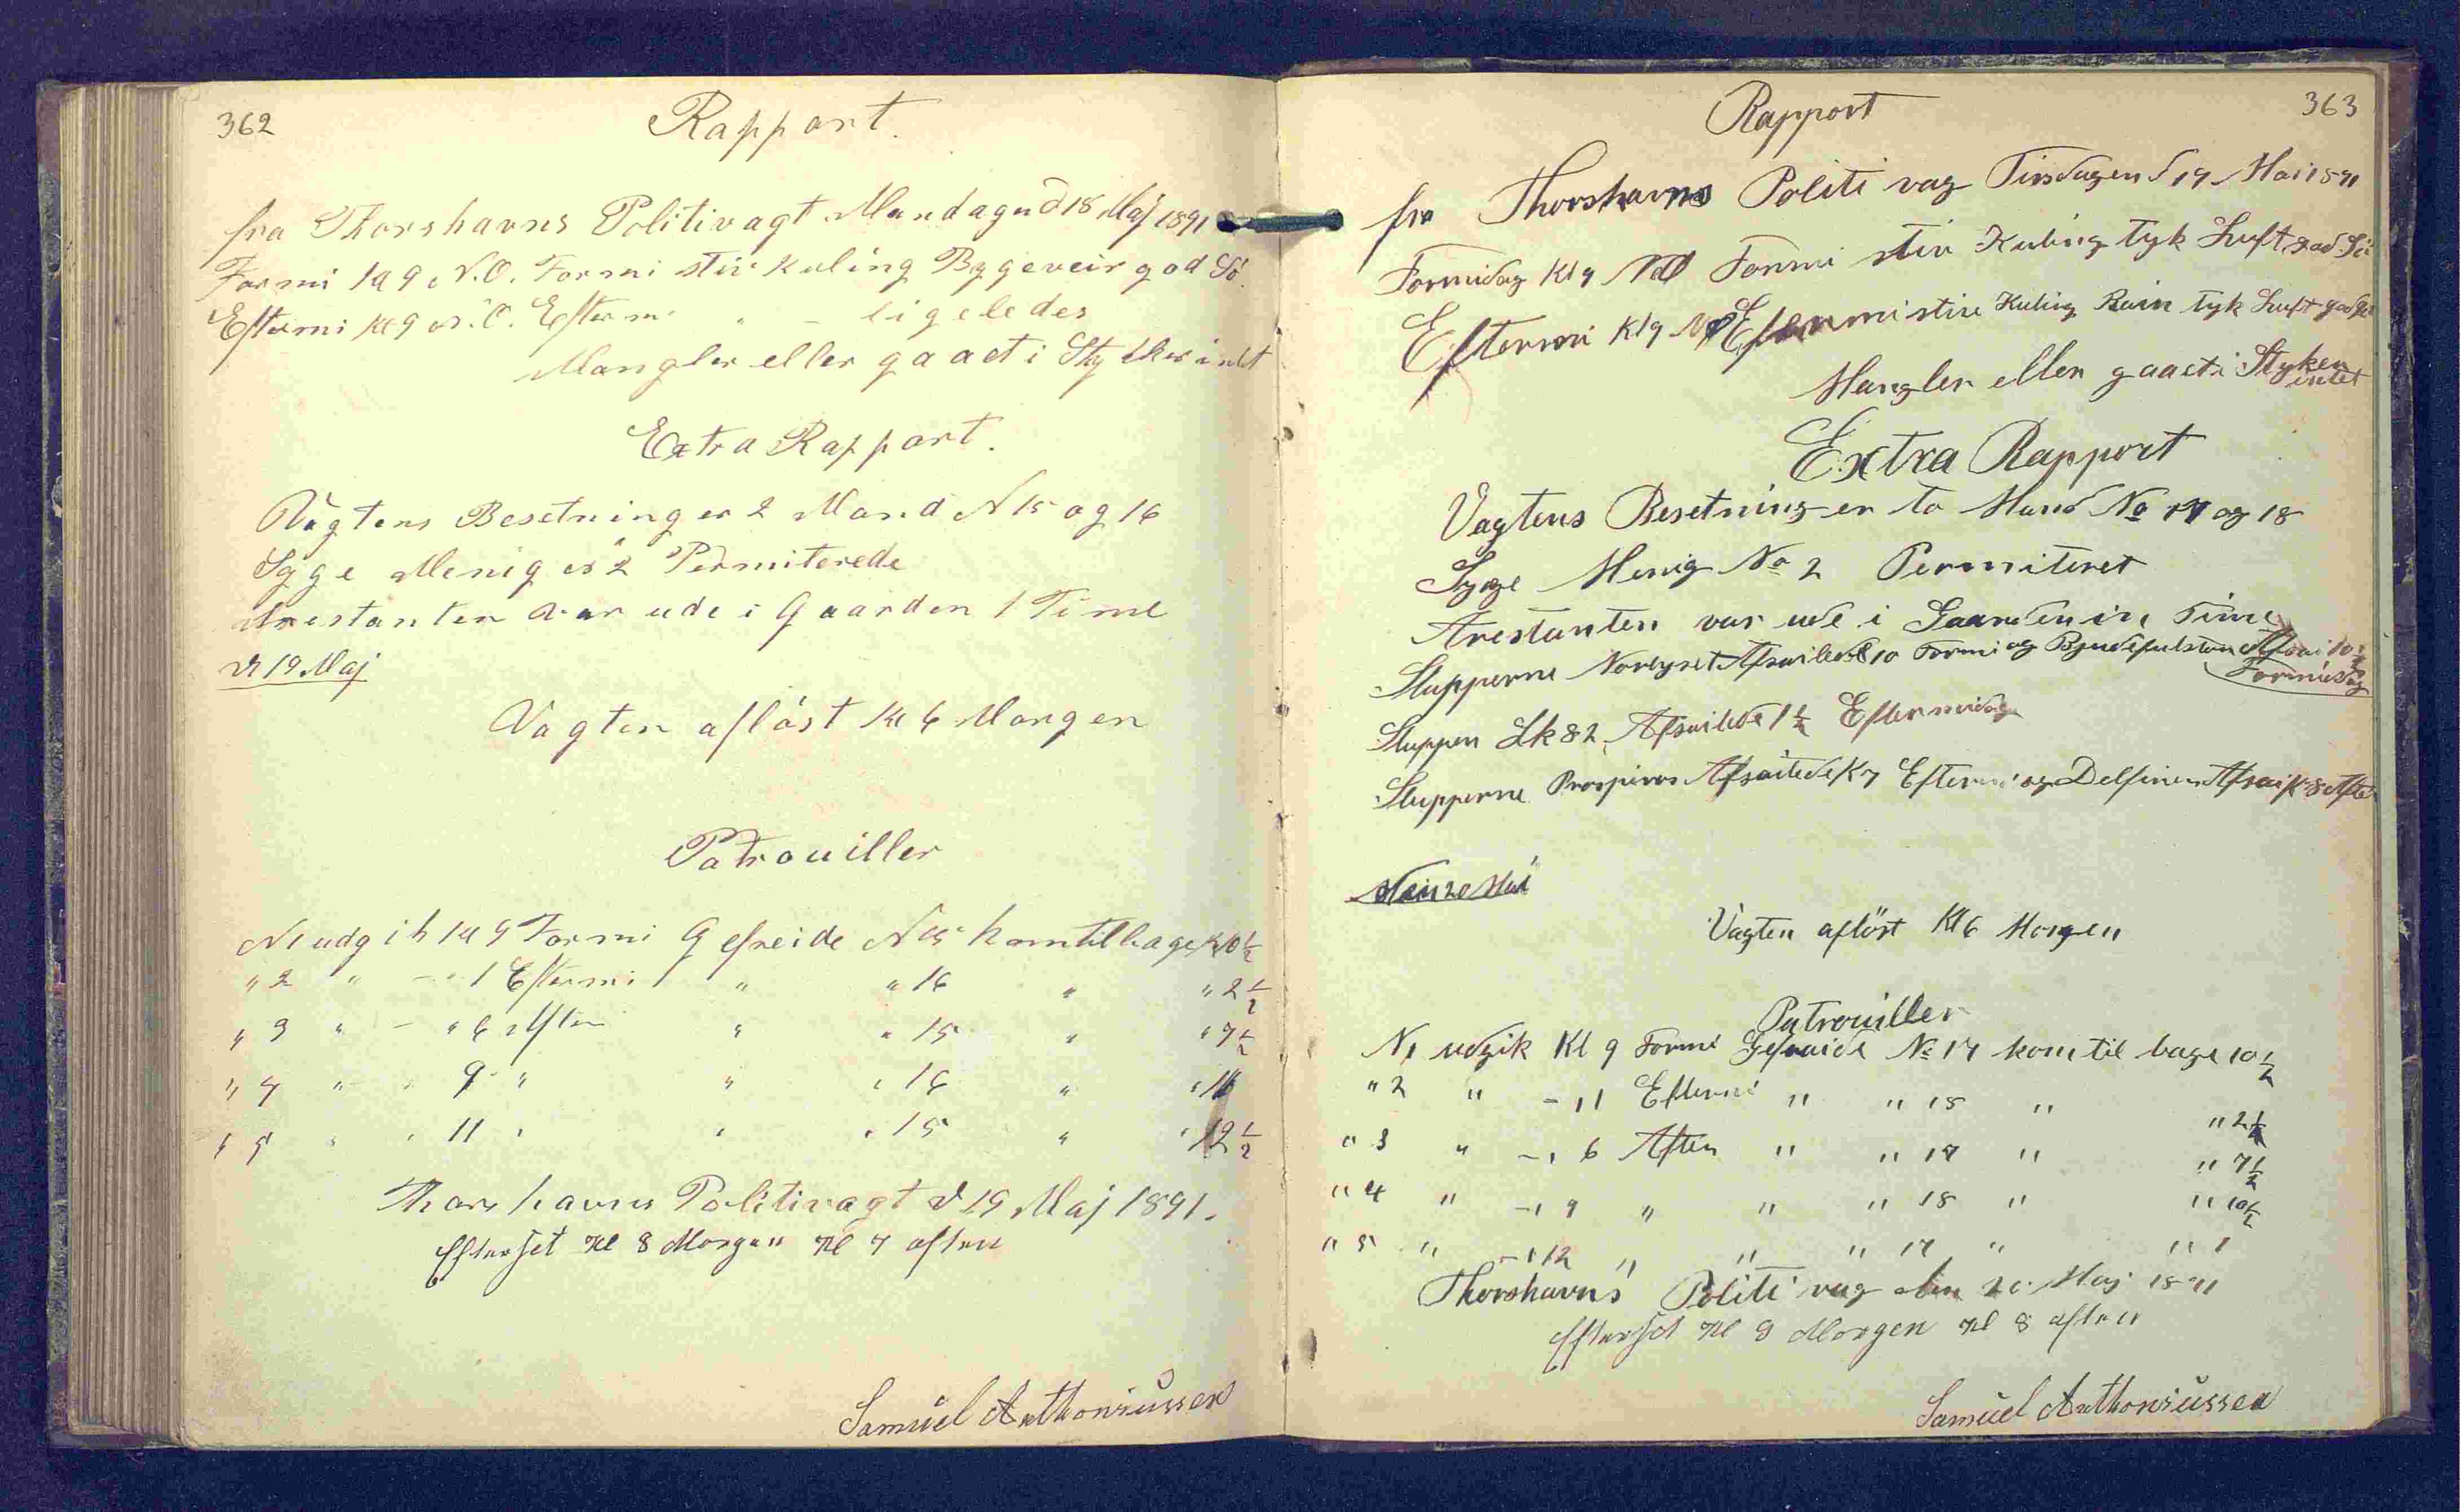 362
Rapport.
fra Thorshavns Politivagt Mandagen d 18 Maj 1891
Formi kl 9 N.O. Formi stiv kuling Bygeveir god Sö.
Eftermi kl 9 N.O. Efterm " - ligeledes
Mangler eller gaaet i Stykker intet
Extra Rapport.
Vagtens Besetning er 2 Mand N 15 og 16
Syge Menig N 2 Permiterede
Arestanten var ude i Gaarden 1 Time
d 19 Maj
Vagten aflöst kl 6 Morgen
Patrouiller
N 1 udgik kl 9 Formi Gefreide N 15 kom tilbage kl 10 1/2
" 2 " - " 1 Eftermi " " 16 " " 2 1/2
" 3 " - " 6 Aften " " 15 " " 7 1/2
" 4 " " 9 " " " 16 " "
" 5 " " 11 " " " 15 " " 12 1/2
Thorshavns Politivagt d 19 Maj 1891.
Efterset Kl 8 Morgen Kl 7 aften
Samuel Anthoniussen
363
Rapport
fra Thorshavns Politi vag Tirsdagen d 19 Mai 1891
Formidag Kl 9 NO Formi stiv Kuling tyk Luft god Sö
Eftermi Kl 9 NO Eftermi stiv Kuling Rain tyk Luft god
Mangler eller gaaet i Styker
intet
Extra Rapport
Vagtens Besetning er to Mand No 17 og 18
Syge Menig No 2 Permiteret
Arestanten var ude i Gaarden in Time
Slupperne Norlyset Afsailede 10 Formi og Afsai 10 1/2
Formidag
Sluppen Lk 82 Afsailede 1 1/2 Eftermidag
Slupperne Prosperos Afsailede K 7 Eftermi og Delfinen Afsai K 8 Aften
20 Mai
Vagten aflöst Kl 6 Morgen
Patrouiller
N 1 udgik Kl 9 Formi Gefraide No 17 kom til bage 10 1/2
" 2 " - " 1 Eftermi " " 18 " " 2 1/2
" 3 " - " 6 Aften " " 17 " " 7 1/2
" 4 " - " 9 " " " 18 " " 10 1/2
" 5 " - " 12 " " " 17 " " 1
Thorshavns Politi vag den 20 Maj 1891
Efterset Kl 9 Morgen Kl 8 aften
Samuel Anthoniussen